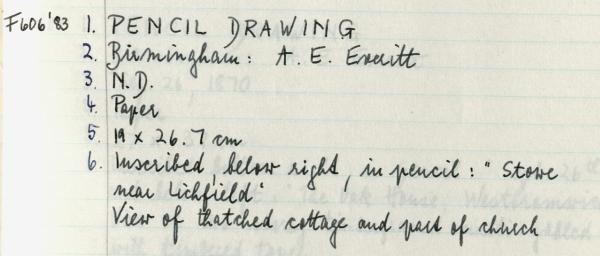 F606'83 1. PENCIL DRAWING
2. Birmingham: A. E. Everitt
3. N.D.
4. Paper
5. 19 x 26.7 cm
6. Inscribed, below right, in pencil: "Stowe
near Lichfield"
View of thatched cottage and part of church